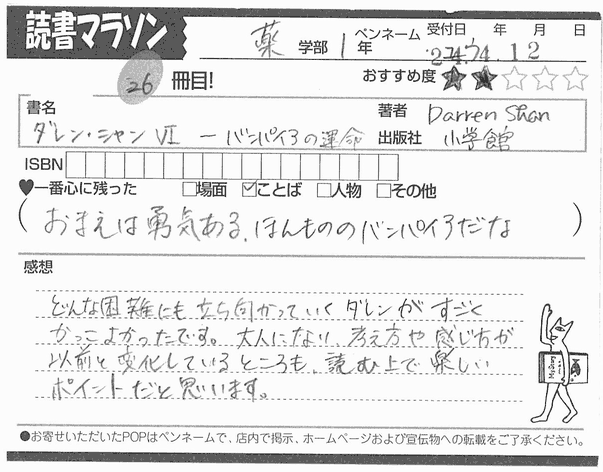 読書マラソン
薬 学部 1年 ペンネーム 受付日 年 月 日
26 冊目! おすすめ度 ★★☆☆☆
書名 著者 Darren Shan
ダレン・シャン VI ーバンパイアの運命 出版社 小学館
ISBN
♥一番心に残った □場面 ☑ことば □人物 □その他
(おまえは勇気ある、ほんもののバンパイアだな)
感想
どんな困難にも立ち向かっていくダレンがすごく
かっこよかったです。大人にない、考え方や感じ方が
以前と変化しているところも、読む上で楽しい
ポイントだと思います。
●お寄せいただいたPOPはペンネームで、店内で掲示、ホームページおよび宣伝物への転載をご了承ください。